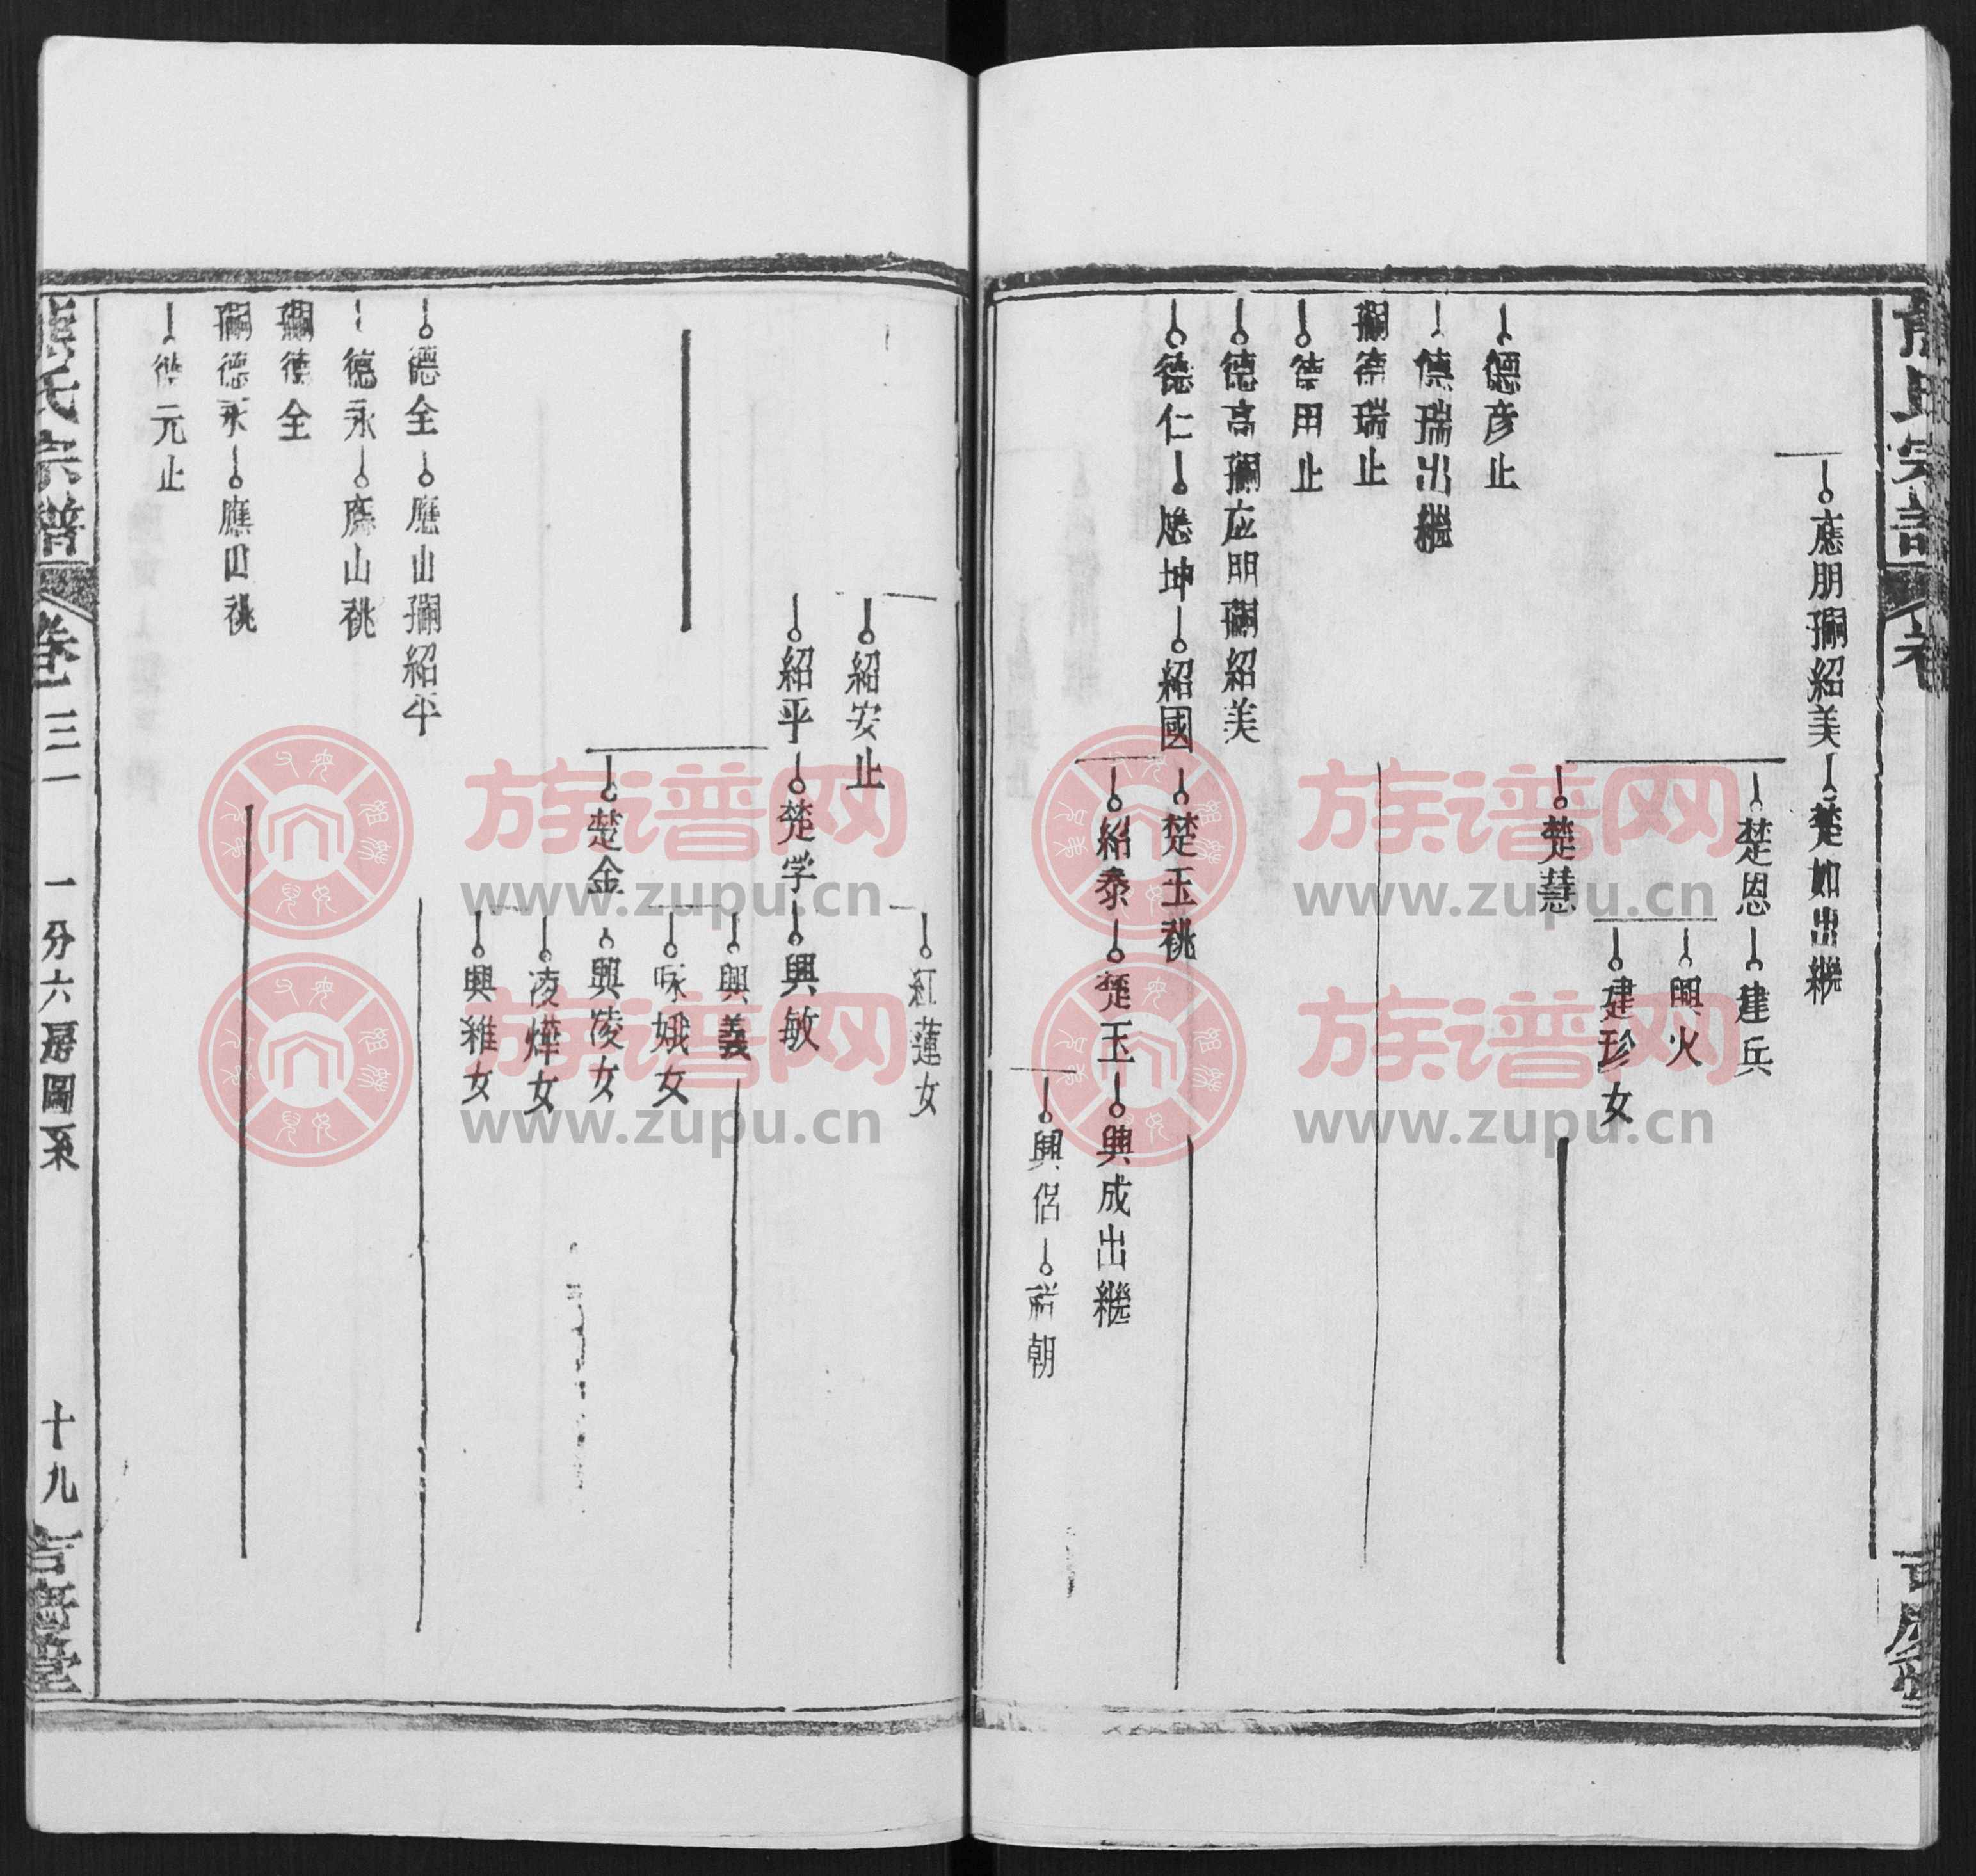 應朋嗣紹美楚如出繼
楚恩建兵
興火
建珍女
楚慧
德彦止
德瑞出繼
嗣德瑞止
德用止
德高嗣应明嗣紹美
德仁應坤紹國楚玉祧
紹泰楚玉興成出繼
興侶
朝
紅蓮女
紹安止
紹平楚学興敏
興義
咏娥女
楚金興凌女
凌燁女
興雅女
德全應山嗣紹平
德永應山祧
嗣德全
嗣德永應四祧
德元止
氏宗譜
卷三一
一分六房圖系
十九
堂
族谱网
www.zupu.cn
族谱网
www.zupu.cn
族谱网
www.zupu.cn
族谱网
www.zupu.cn